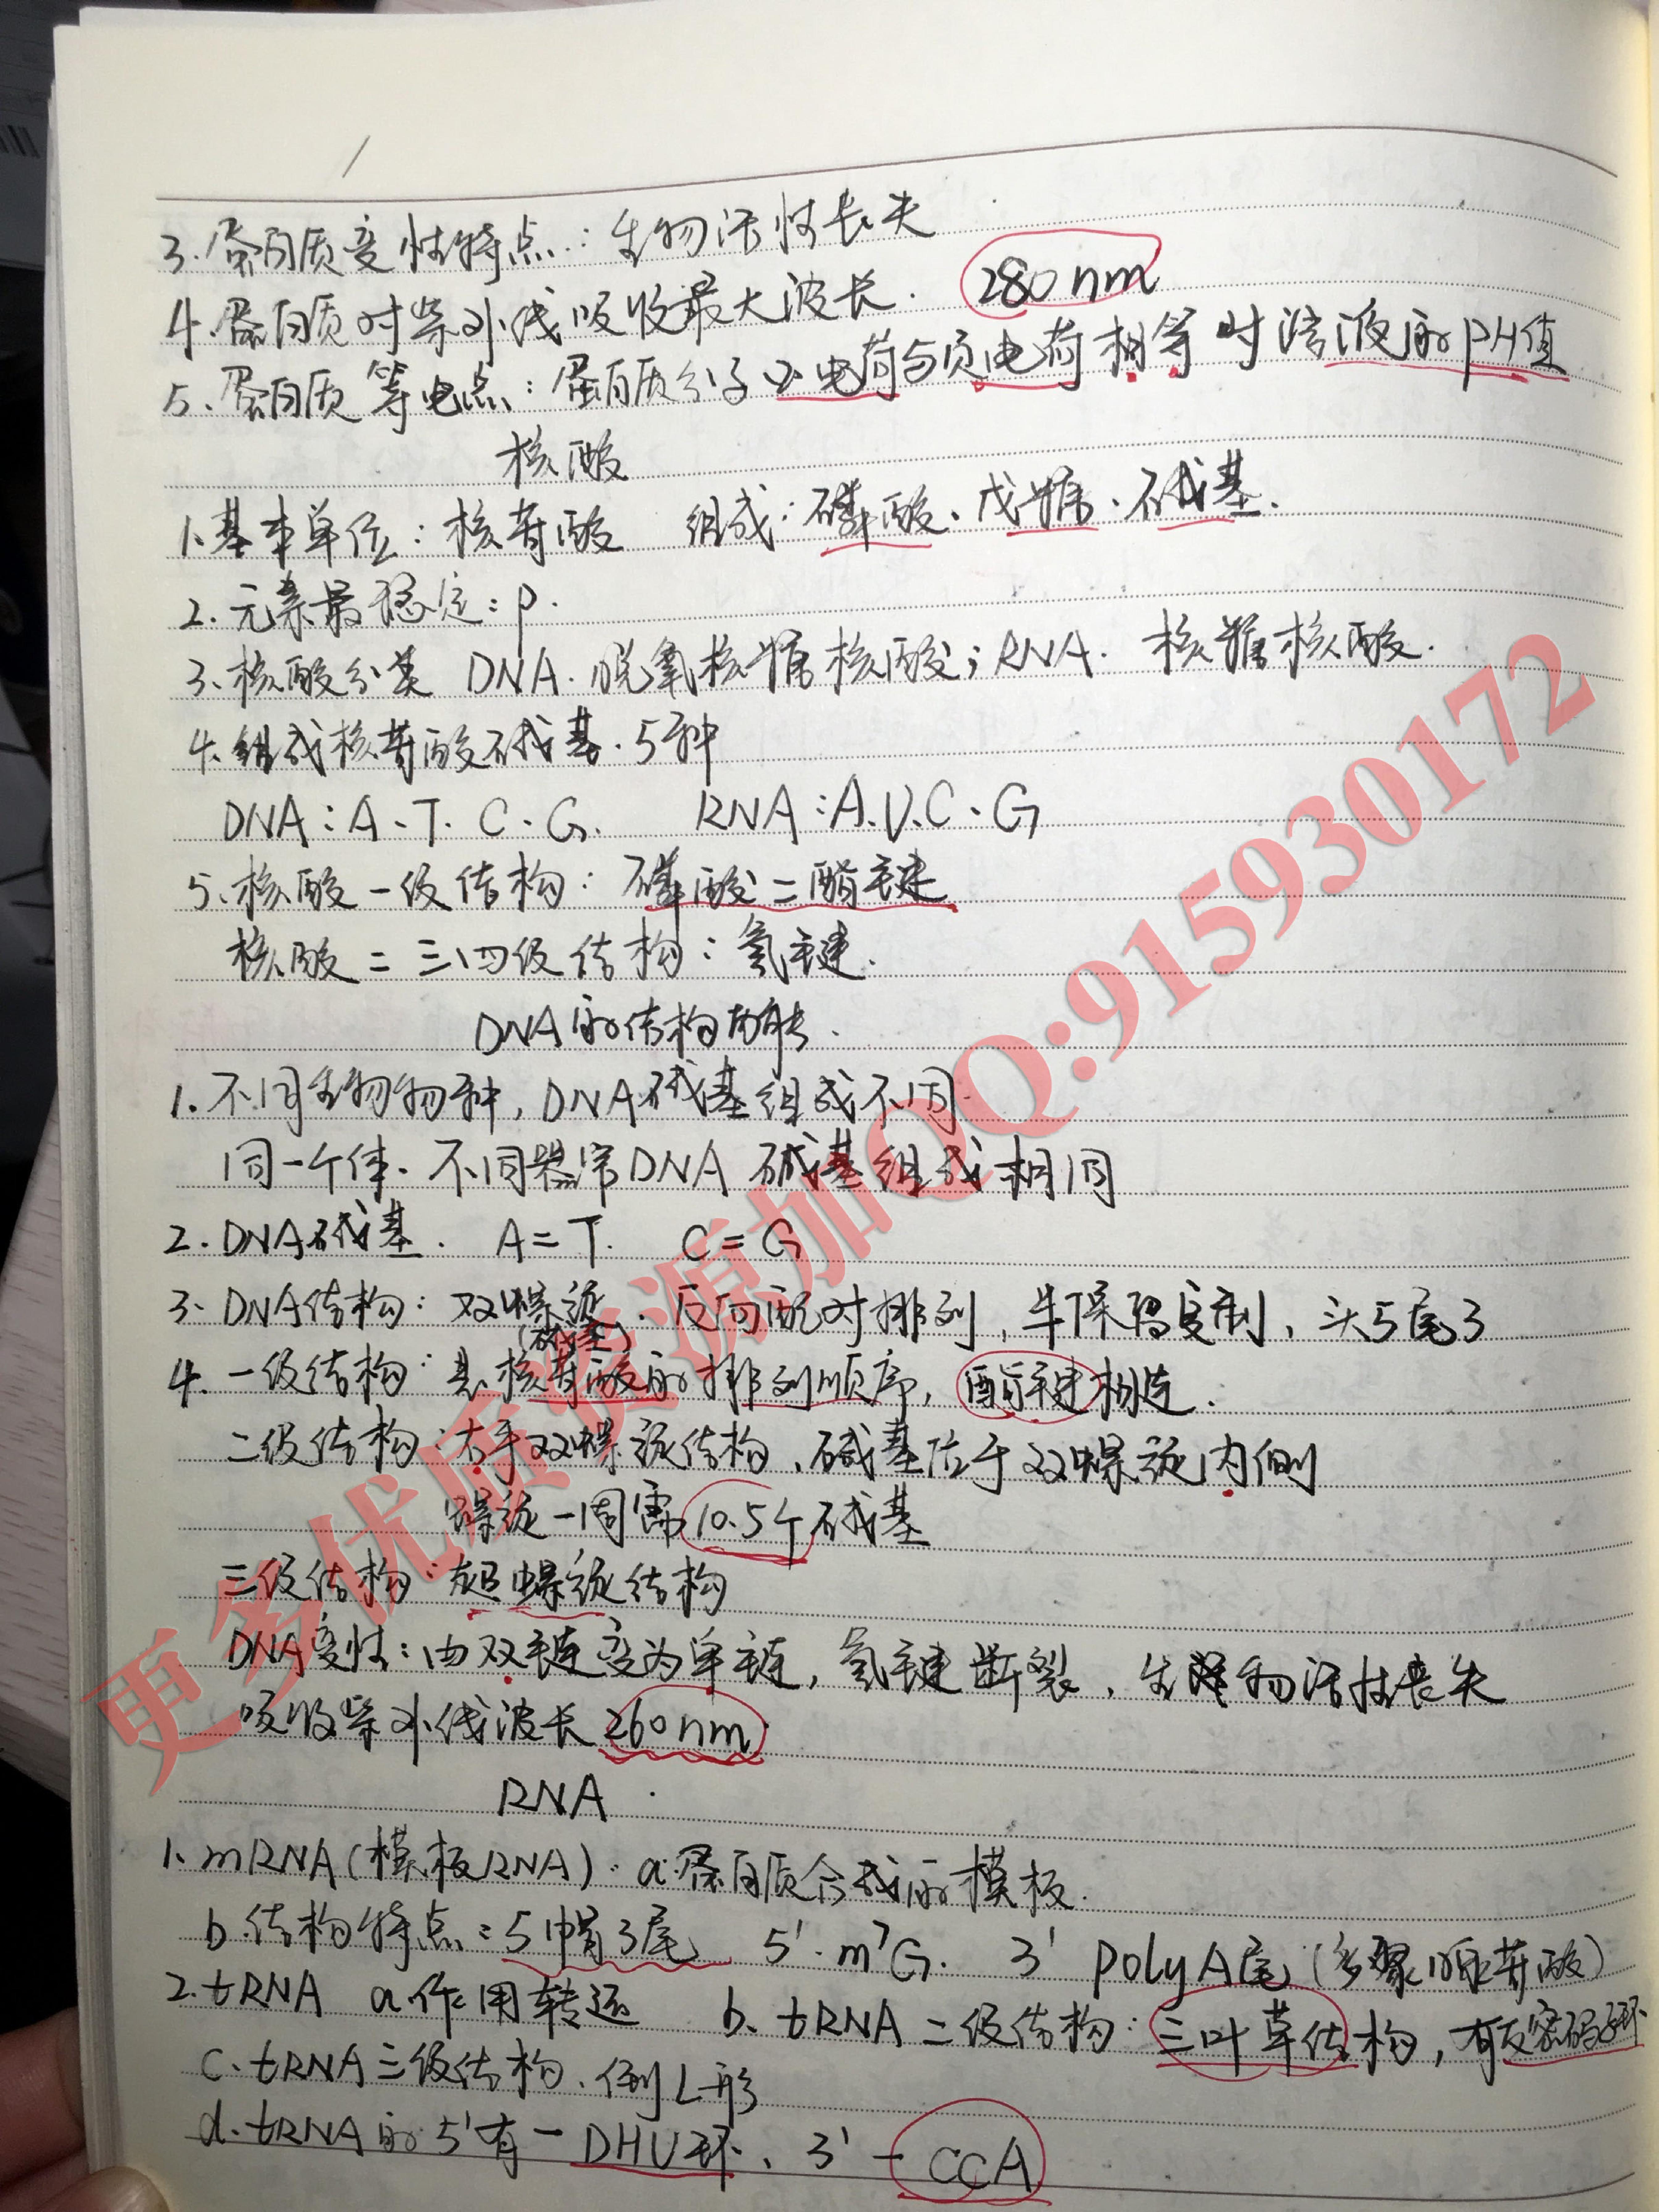 3.蛋白质变性特点:生物活性丧失
4.蛋白质对紫外线吸收最大波长. 280nm
5.蛋白质等电点:蛋白质分子正电荷与负电荷相等时溶液的PH值
核酸
1.基本单位:核苷酸 组成:磷酸、戊糖、碱基.
2.元素最稳定:P.
3.核酸分类 DNA.脱氧核糖核酸;RNA.核糖核酸.
4.组成核苷酸碱基.5种
DNA:A.T.C.G. RNA:A.U.C.G
5.核酸一级结构:磷酸二酯键
核酸二三四级结构:氢键.
DNA的结构功能.
1.不同生物物种,DNA碱基组成不同.
同一个体.不同器官DNA碱基组成相同
2.DNA碱基. A=T. C=G
3.DNA结构:双螺旋、反向配对排列,半保留复制,头5尾3
(碱基)
4.一级结构:是核苷酸的排列顺序,酯键相连.
二级结构:右手双螺旋结构、碱基位于双螺旋内侧
螺旋一周需10.5个碱基
三级结构:超螺旋结构
DNA变性:由双链变为单链,氢键断裂,生物活性丧失
吸收紫外线波长260nm
RNA.
1.mRNA(模板RNA).a.蛋白质合成的模板.
b.结构特点:5帽3尾 5'.m⁷G. 3' polyA尾(多聚腺苷酸)
2.tRNA a.作用转运 b.tRNA二级结构:三叶草结构,有反密码子环
c.tRNA三级结构.倒L形
d.tRNA的5'有一DHU环、3'-CCA
更多优质资源加QQ:915930172